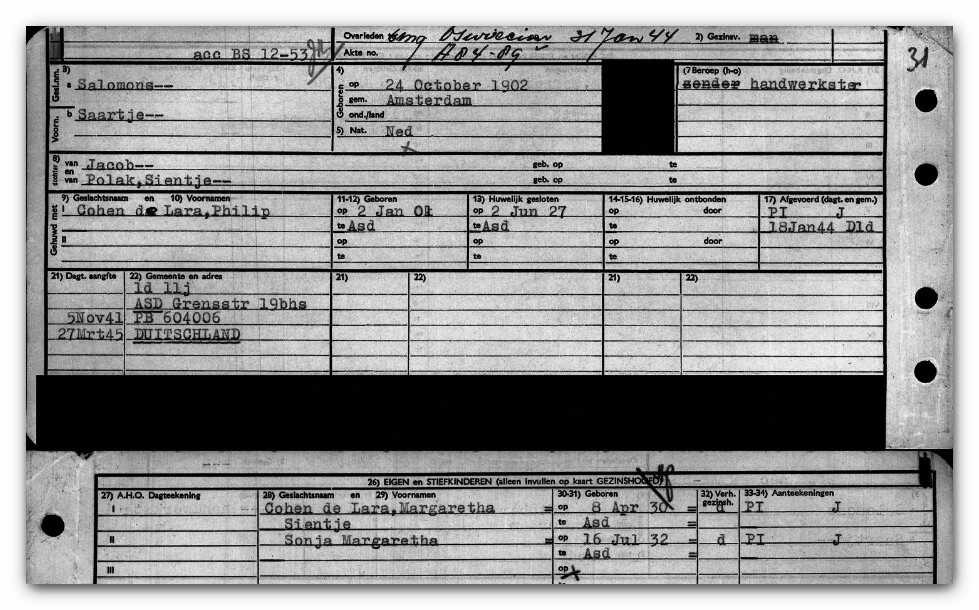 Overleden omg Oswiecim 31 Jan 44 2) Gezinsv. man
acc BS 12-53
Akte no. A84-89
31
Gesl.nm. 3) a Salomons--
4) Geboren op 24 October 1902
(7 Beroep (h-o)
zonder handwerkster
gem. Amsterdam
Voorn. b Saartje--
ond./land
5) Nat. Ned
8) van Jacob-- geb. op te
en
van Polak,Sientje-- geb. op te
Gehuwd met 9) Geslachtsnaam en 10) Voornamen 11-12) Geboren 13) Huwelijk gesloten 14-15-16) Huwelijk ontbonden 17) Afgevoerd (dagt. en gem.)
I Cohen de Lara,Philip op 2 Jan 01 op 2 Jun 27 op door PI J
te Asd te Asd te 18Jan44 Dld
II op op op door
te te te
21) Dagt. aangfte 22) Gemeente en adres 21) 22) 21) 22)
1d 11j
ASD Grensstr 19bhs
5Nov41 PB 604006
27Mrt45 DUITSCHLAND
26) EIGEN en STIEFKINDEREN (alleen invullen op kaart GEZINSHOOFD)
27) A.H.O. Dagteekening 28) Geslachtsnaam en 29) Voornamen 30-31) Geboren 32) Verh. gezinsh. 33-34) Aanteekeningen
I Cohen de Lara,Margaretha = op 8 Apr 30 = d PI J
Sientje te Asd =
II Sonja Margaretha = op 16 Jul 32 = d PI J
te Asd =
III op